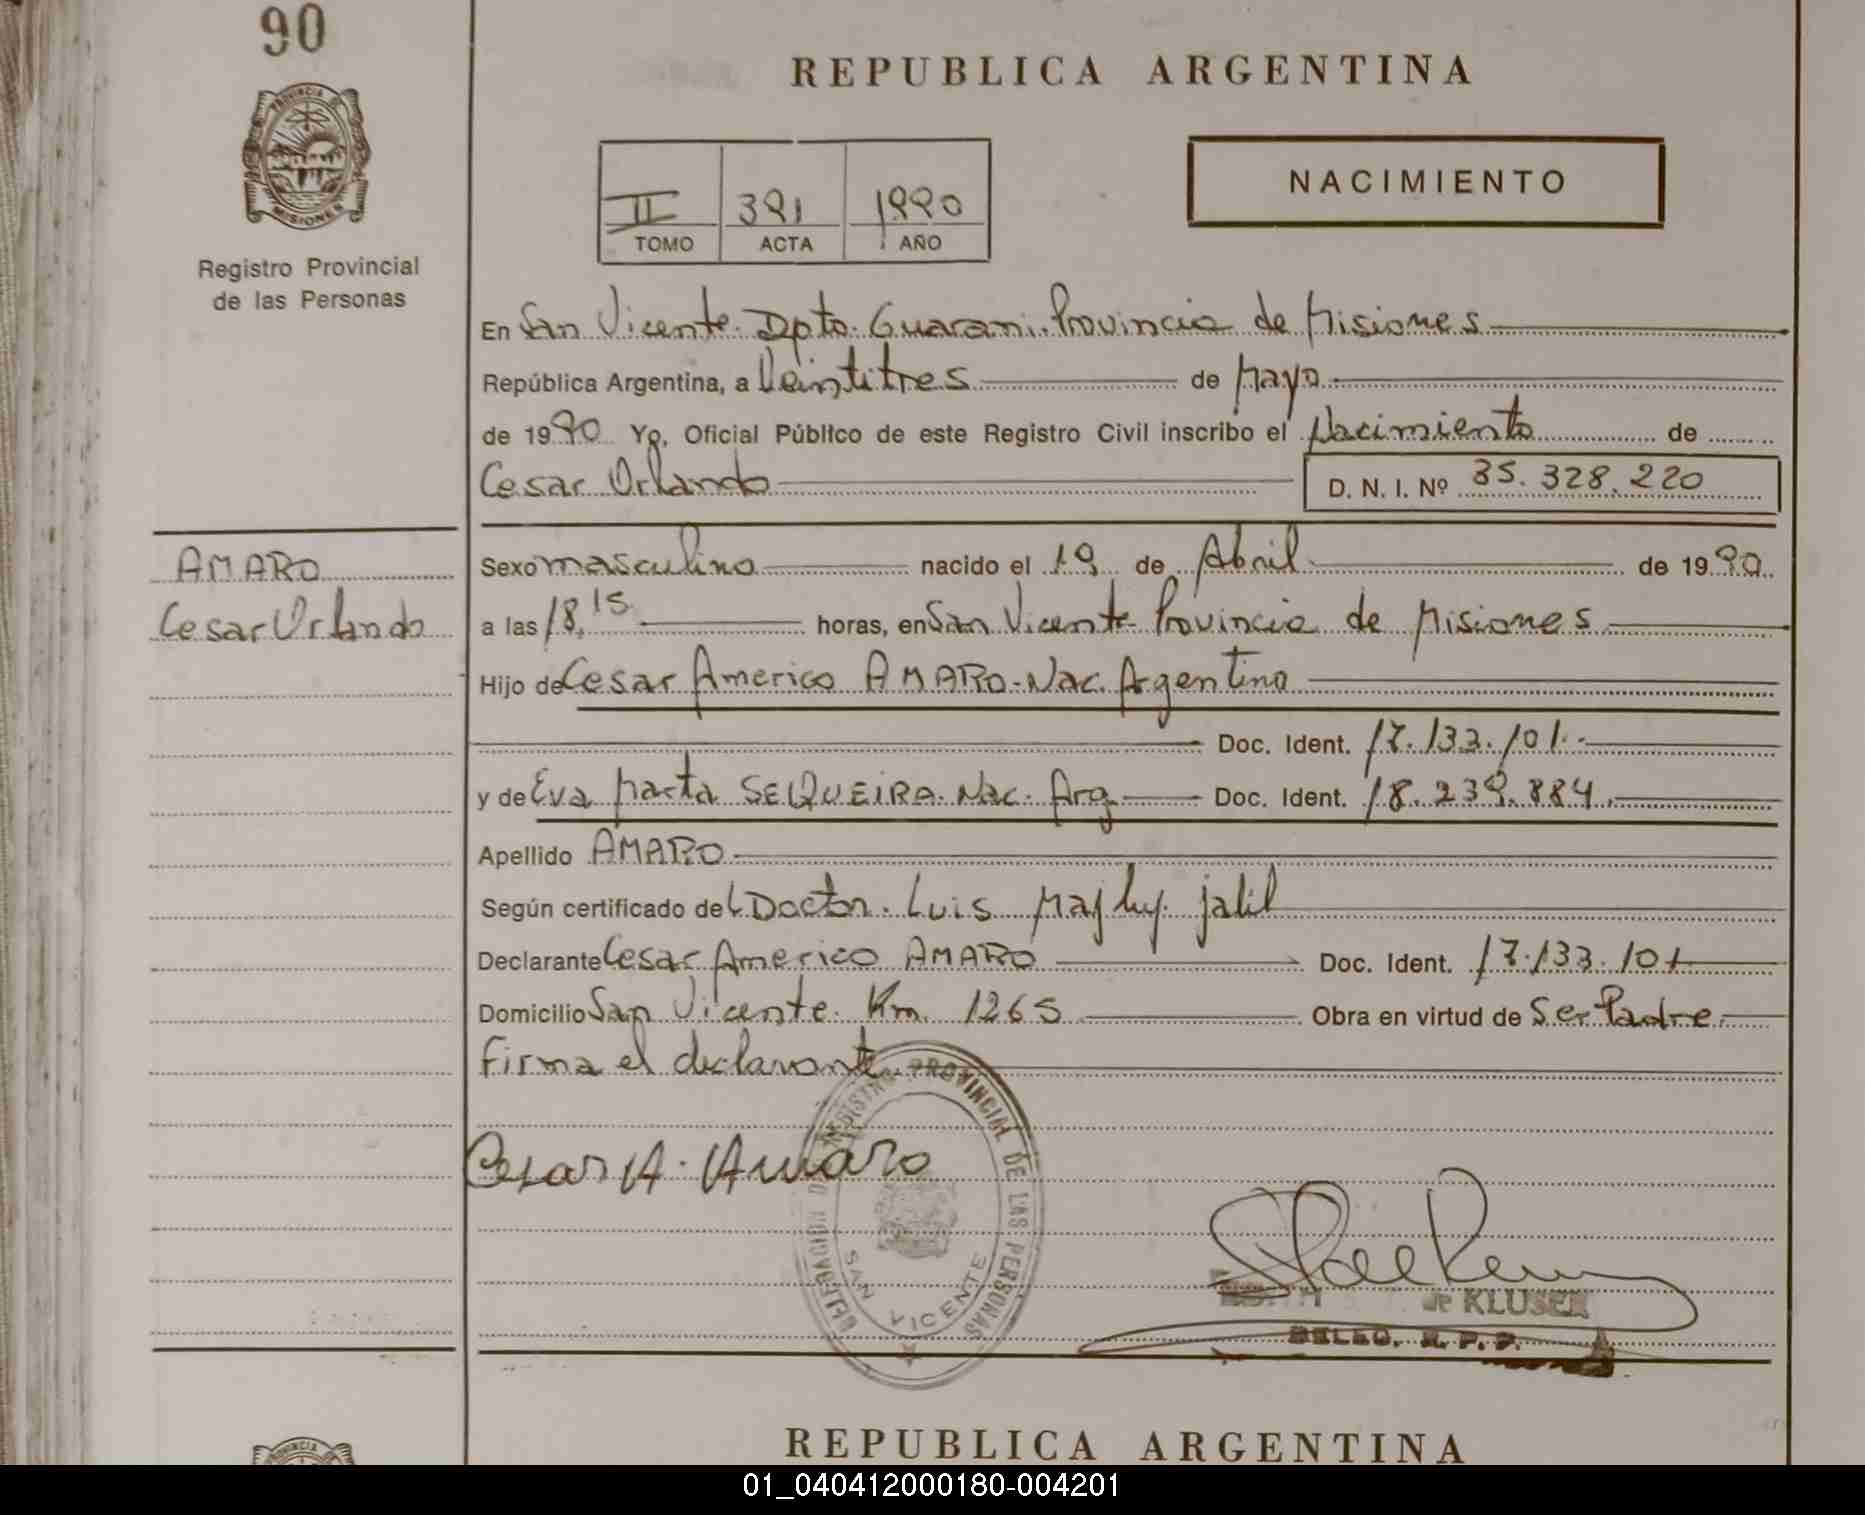 90
PROVINCIA DE
MISIONES
Registro Provincial
de las Personas
REPUBLICA ARGENTINA
II 391 1990
TOMO ACTA AÑO
NACIMIENTO
En San Vicente. Dpto. Guarani. Provincia de Misiones
República Argentina, a Veintitres de Mayo
de 1990 Yo, Oficial Público de este Registro Civil inscribo el Nacimiento de
Cesar Orlando D. N. I. Nº 35.328.220
AMARO
Cesar Orlando
Sexo masculino nacido el 19 de Abril de 1990
a las 18,15 horas, en San Vicente Provincia de Misiones
Hijo de Cesar Americo AMARO. Nac. Argentino
Doc. Ident. 17.133.101.
y de Eva Marta SEQUEIRA. Nac. Arg. Doc. Ident. 18.239.884.
Apellido AMARO
Según certificado del Doctor. Luis jalil
Declarante Cesar Americo AMARO Doc. Ident. 17.133.101
Domicilio San Vicente. Km. 1265 Obra en virtud de Ser Padre.
Firma el declarante.
Cesar A. Amaro
REGISTRO PROVINCIAL DE LAS PERSONAS
SAN VICENTE
de KLUSER
R. P. P.
PROVINCIA
REPUBLICA ARGENTINA
01_040412000180-004201